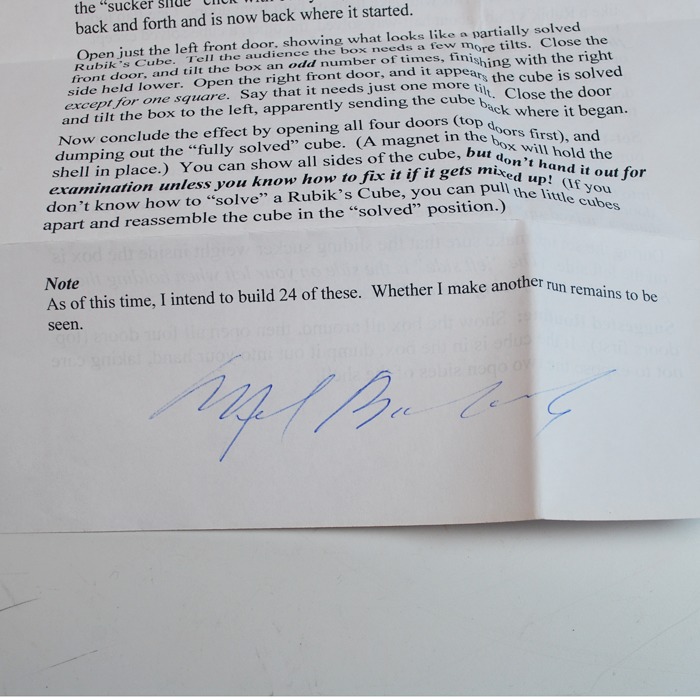 the "sucker slide"
back and forth and is now back where it started.
Open just the left front door, showing what looks like a partially solved
Rubik's Cube. Tell the audience the box needs a few more tilts. Close the
front door, and tilt the box an odd number of times, finishing with the right
side held lower. Open the right front door, and it appears the cube is solved
except for one square. Say that it needs just one more tilt. Close the door
and tilt the box to the left, apparently sending the cube back where it began.
Now conclude the effect by opening all four doors (top doors first), and
dumping out the "fully solved" cube. (A magnet in the box will hold the
shell in place.) You can show all sides of the cube, but don't hand it out for
examination unless you know how to fix it if it gets mixed up! (If you
don't know how to "solve" a Rubik's Cube, you can pull the little cubes
apart and reassemble the cube in the "solved" position.)
Note
As of this time, I intend to build 24 of these. Whether I make another run remains to be
seen.